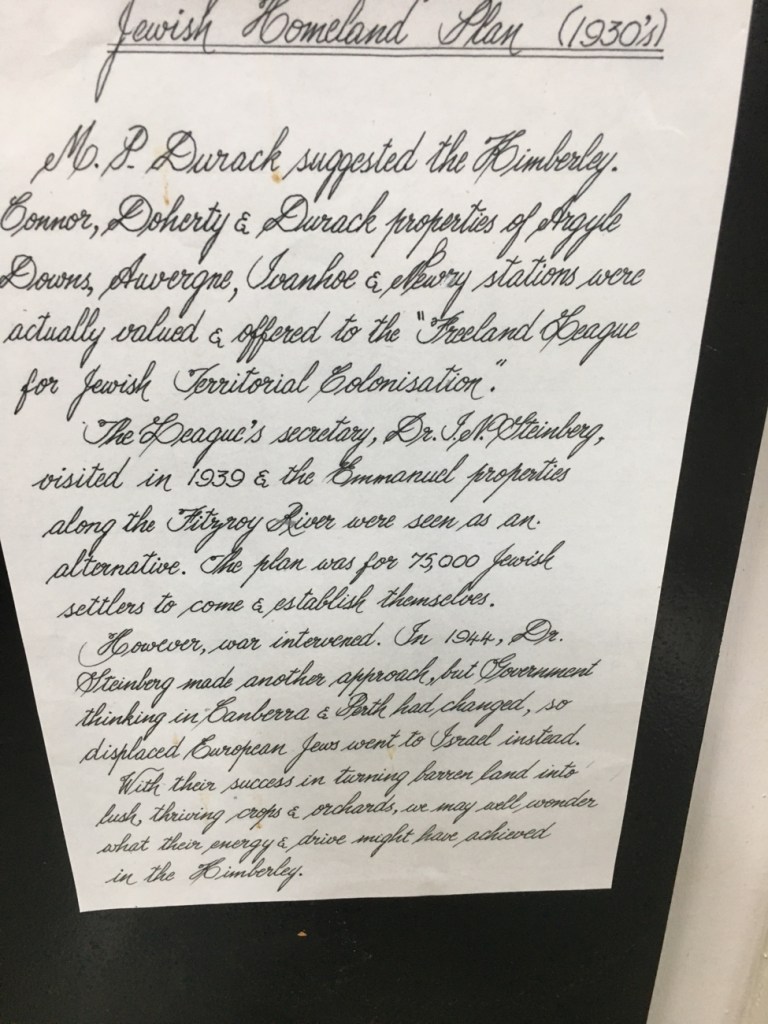 Jewish Homeland Plan (1930's)
M. P. Durack suggested the Kimberley.
Connor, Doherty & Durack properties of Argyle
Downs, Auvergne, Ivanhoe & Newry stations were
actually valued & offered to the "Freeland League
for Jewish Territorial Colonisation".
The League's secretary, Dr. I. N. Steinberg,
visited in 1939 & the Emmanuel properties
along the Fitzroy River were seen as an
alternative. The plan was for 75,000 Jewish
settlers to come & establish themselves.
However, war intervened. In 1944, Dr.
Steinberg made another approach, but Government
thinking in Canberra & Perth had changed, so
displaced European Jews went to Israel instead.
With their success in turning barren land into
lush, thriving crops & orchards, we may well wonder
what their energy & drive might have achieved
in the Kimberley.